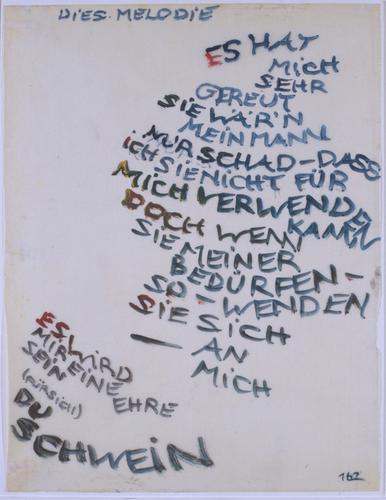 DIES. MELODIE
ES HAT
MICH
SEHR
GEREUT
SIE WÄR'N
MEIN MANN
NUR SCHAD-DASS
ICH SIE NICHT FÜR
MICH VERWENDEN
KANN
DOCH WENN
SIE MEINER
BEDÜRFEN-
SO-WENDEN
SIE SICH
— AN
MICH
ES WIRD
MIR EINE
SEIN EHRE
(FÜR SICH)
DU
SCHWEIN
162